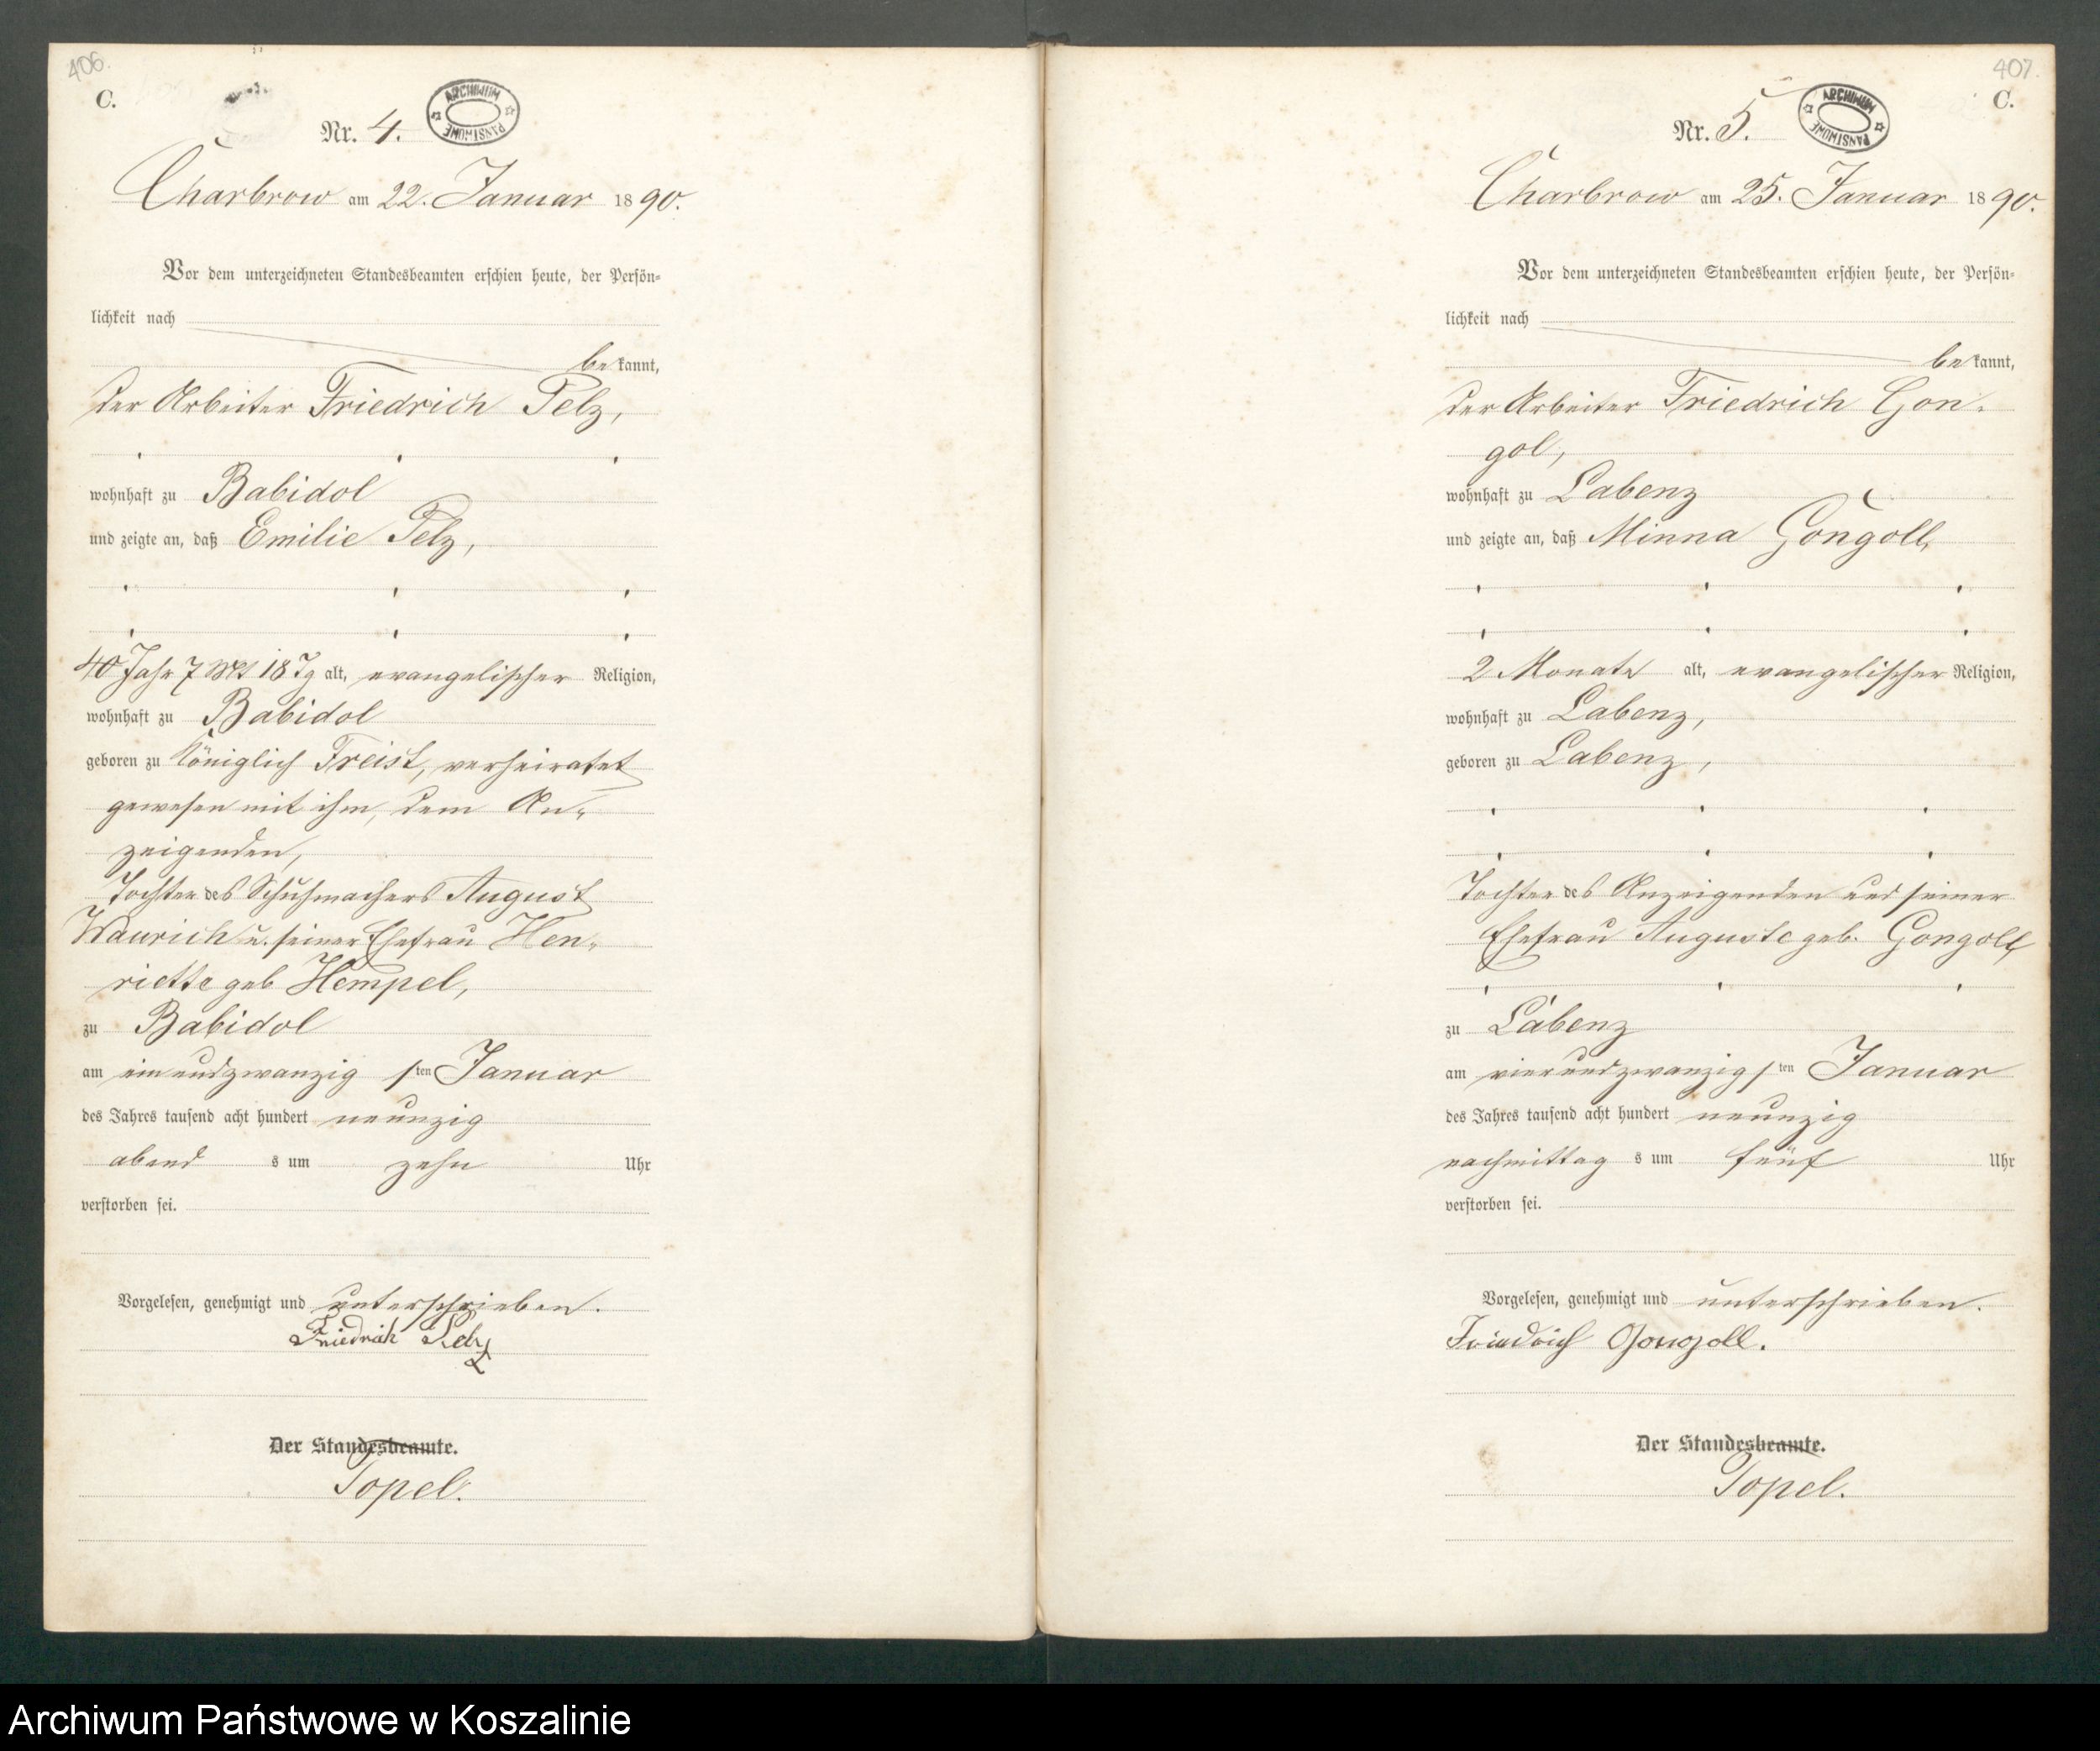 406.
C.
ARCHIWUM PAŃSTWOWE
Nr. 4.
Charbrow am 22. Januar 1890.
Vor dem unterzeichneten Standesbeamten erschien heute, der Persön=
lichkeit nach
bekannt,
der Arbeiter Friedrich Pelz,
wohnhaft zu Babidol
und zeigte an, daß Emilie Pelz,
40 Jahr 7 Mt 18 Tg alt, evangelischer Religion,
wohnhaft zu Babidol
geboren zu Königlich Freist, verheiratet
gewesen mit ihm, dem An=
zeigenden,
Tochter des Schuhmachers August
Waurich u. seiner Ehefrau Hen=
riette geb Hempel,
zu Babidol
am einundzwanzigsten Januar
des Jahres tausend acht hundert neunzig
abends um zehn Uhr
verstorben sei.
Vorgelesen, genehmigt und unterschrieben.
Friedrich Pelz
Der Standesbeamte.
Topel.
407.
C.
ARCHIWUM PAŃSTWOWE
Nr. 5.
Charbrow am 25. Januar 1890.
Vor dem unterzeichneten Standesbeamten erschien heute, der Persön=
lichkeit nach
bekannt,
der Arbeiter Friedrich Gon=
gol,
wohnhaft zu Labenz
und zeigte an, daß Minna Gongoll,
2 Monate alt, evangelischer Religion,
wohnhaft zu Labenz,
geboren zu Labenz,
Tochter des Anzeigenden und seiner
Ehefrau Auguste geb. Gongoll,
zu Labenz
am vierundzwanzigsten Januar
des Jahres tausend acht hundert neunzig
nachmittags um fünf Uhr
verstorben sei.
Vorgelesen, genehmigt und unterschrieben.
Friedrich Gongoll.
Der Standesbeamte.
Topel.
Archiwum Państwowe w Koszalinie